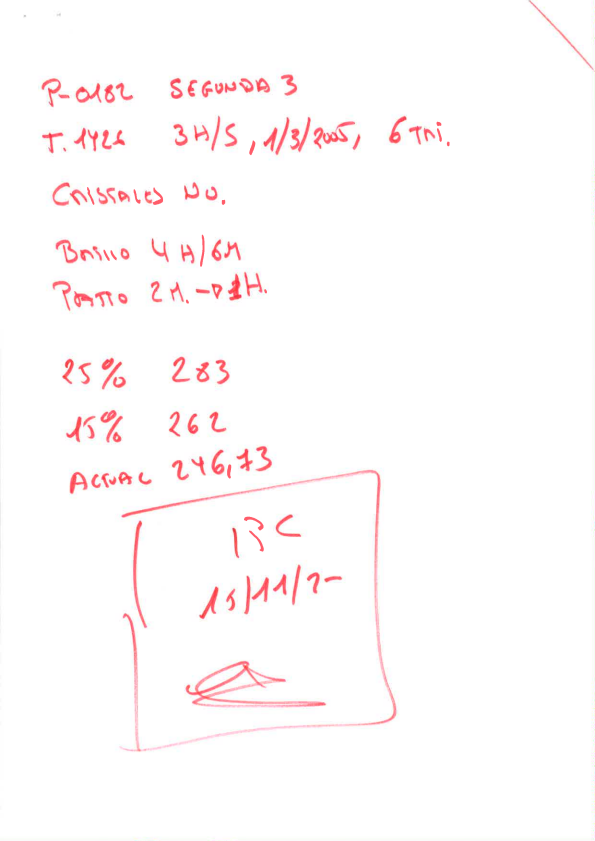 P-0182 SEGUNDA 3
T. 1426 3H/S, 1/3/2005, 6 TRI.
CRISTALES NO.
BRILLO 4 H/6M
2 M. → 1H.
25% 283
15% 262
ACTUAL 246,73
15/11/2-